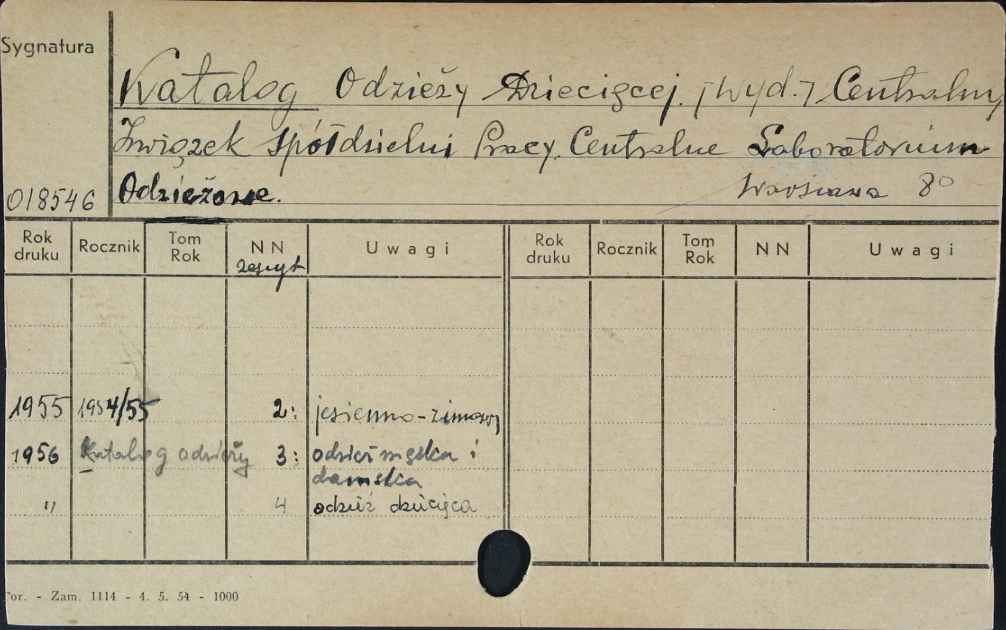 Sygnatura
Katalog Odzieży Dziecięcej. [Wyd.] Centralny
Związek Spółdzielni Pracy. Centralne Laboratorium
018546 Odzieżowe. Warszawa 8°
Rok druku Rocznik Tom Rok NN zeszyt Uwagi Rok druku Rocznik Tom Rok NN Uwagi
1955 1954/55 2: jesienno-zimowy
1956 Katalog odzieży 3: odzież męska i
damska
" 4 odzież dziecięca
For. - Zam. 1114 - 4. 5. 54 - 1000